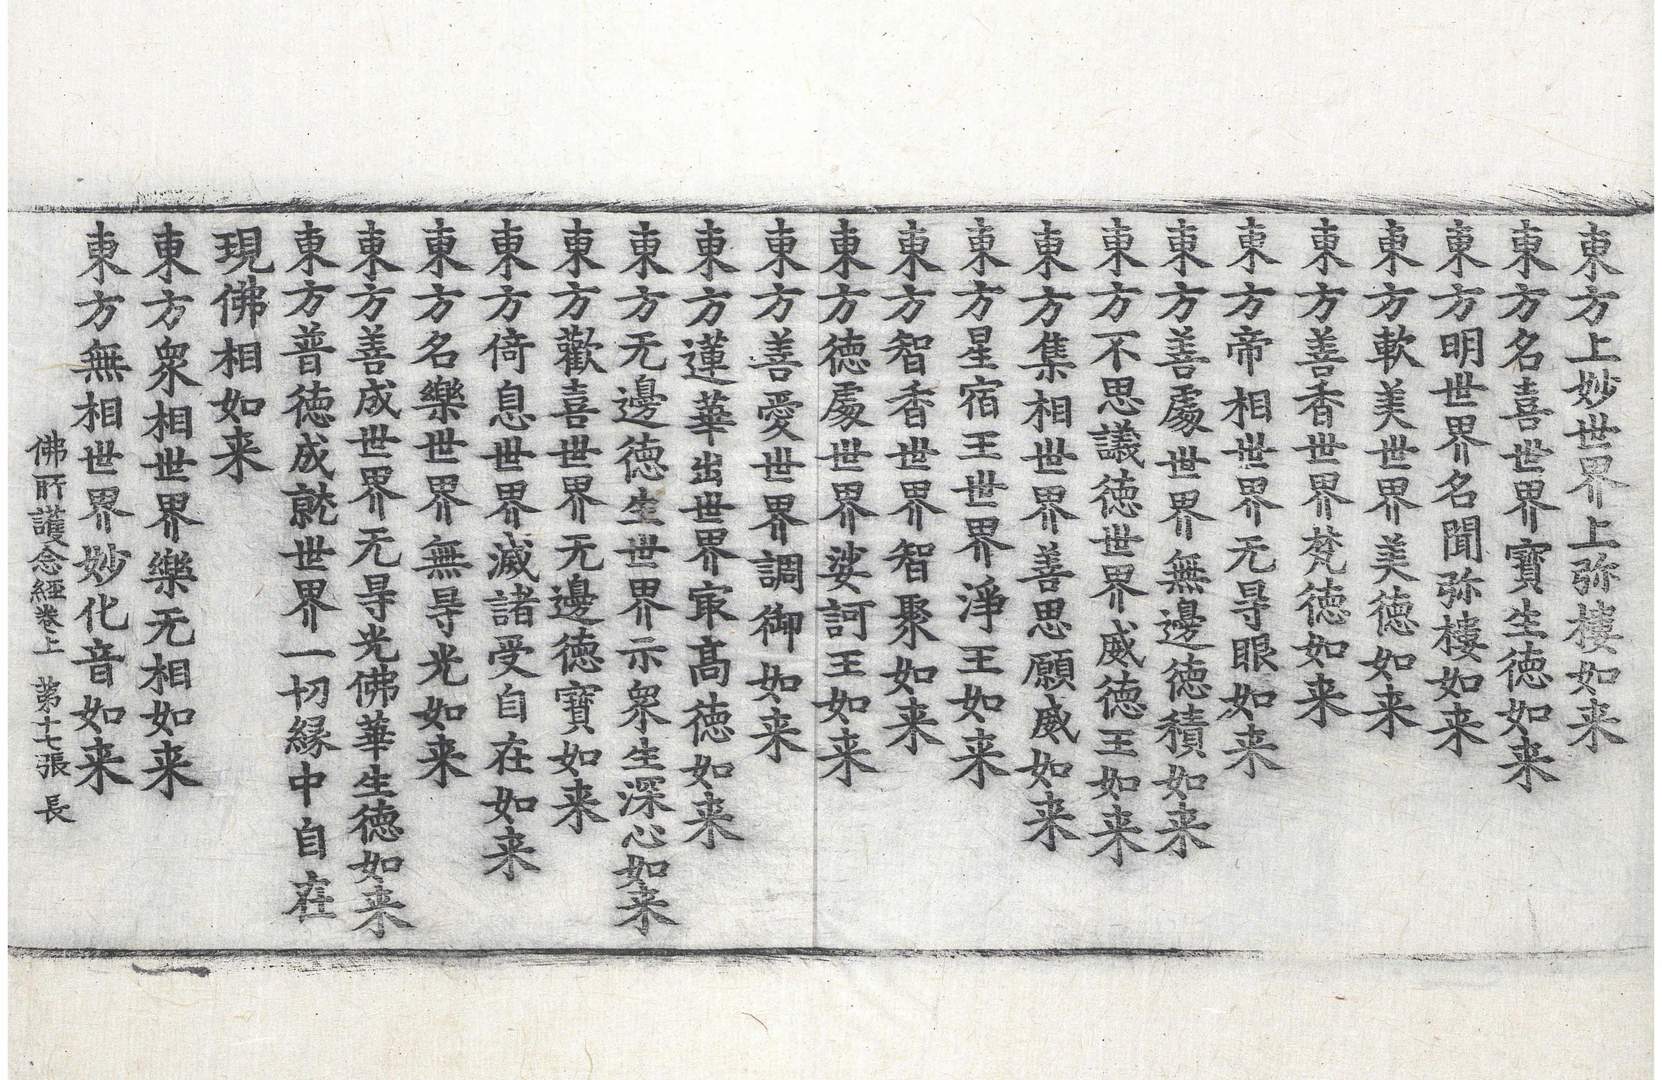 東方上妙世界上弥樓如来
東方名喜世界寶生徳如来
東方明世界名聞弥樓如来
東方軟美世界美徳如来
東方善香世界梵徳如来
東方帝相世界无㝵眼如来
東方善處世界無邊徳積如来
東方不思議徳世界威徳王如来
東方集相世界善思願威如来
東方星宿王世界淨王如来
東方智香世界智聚如来
東方徳處世界娑訶王如来
東方善愛世界調御如来
東方蓮華出世界㝡髙徳如来
東方无邊徳生世界示衆生深心如来
東方歡喜世界无邊徳寶如来
東方倚息世界滅諸受自在如来
東方名樂世界無㝵光如来
東方善成世界无㝵光佛華生徳如来
東方普徳成就世界一切縁中自在
現佛相如来
東方衆相世界樂无相如来
東方無相世界妙化音如来
佛所護念經卷上 第十七張 長